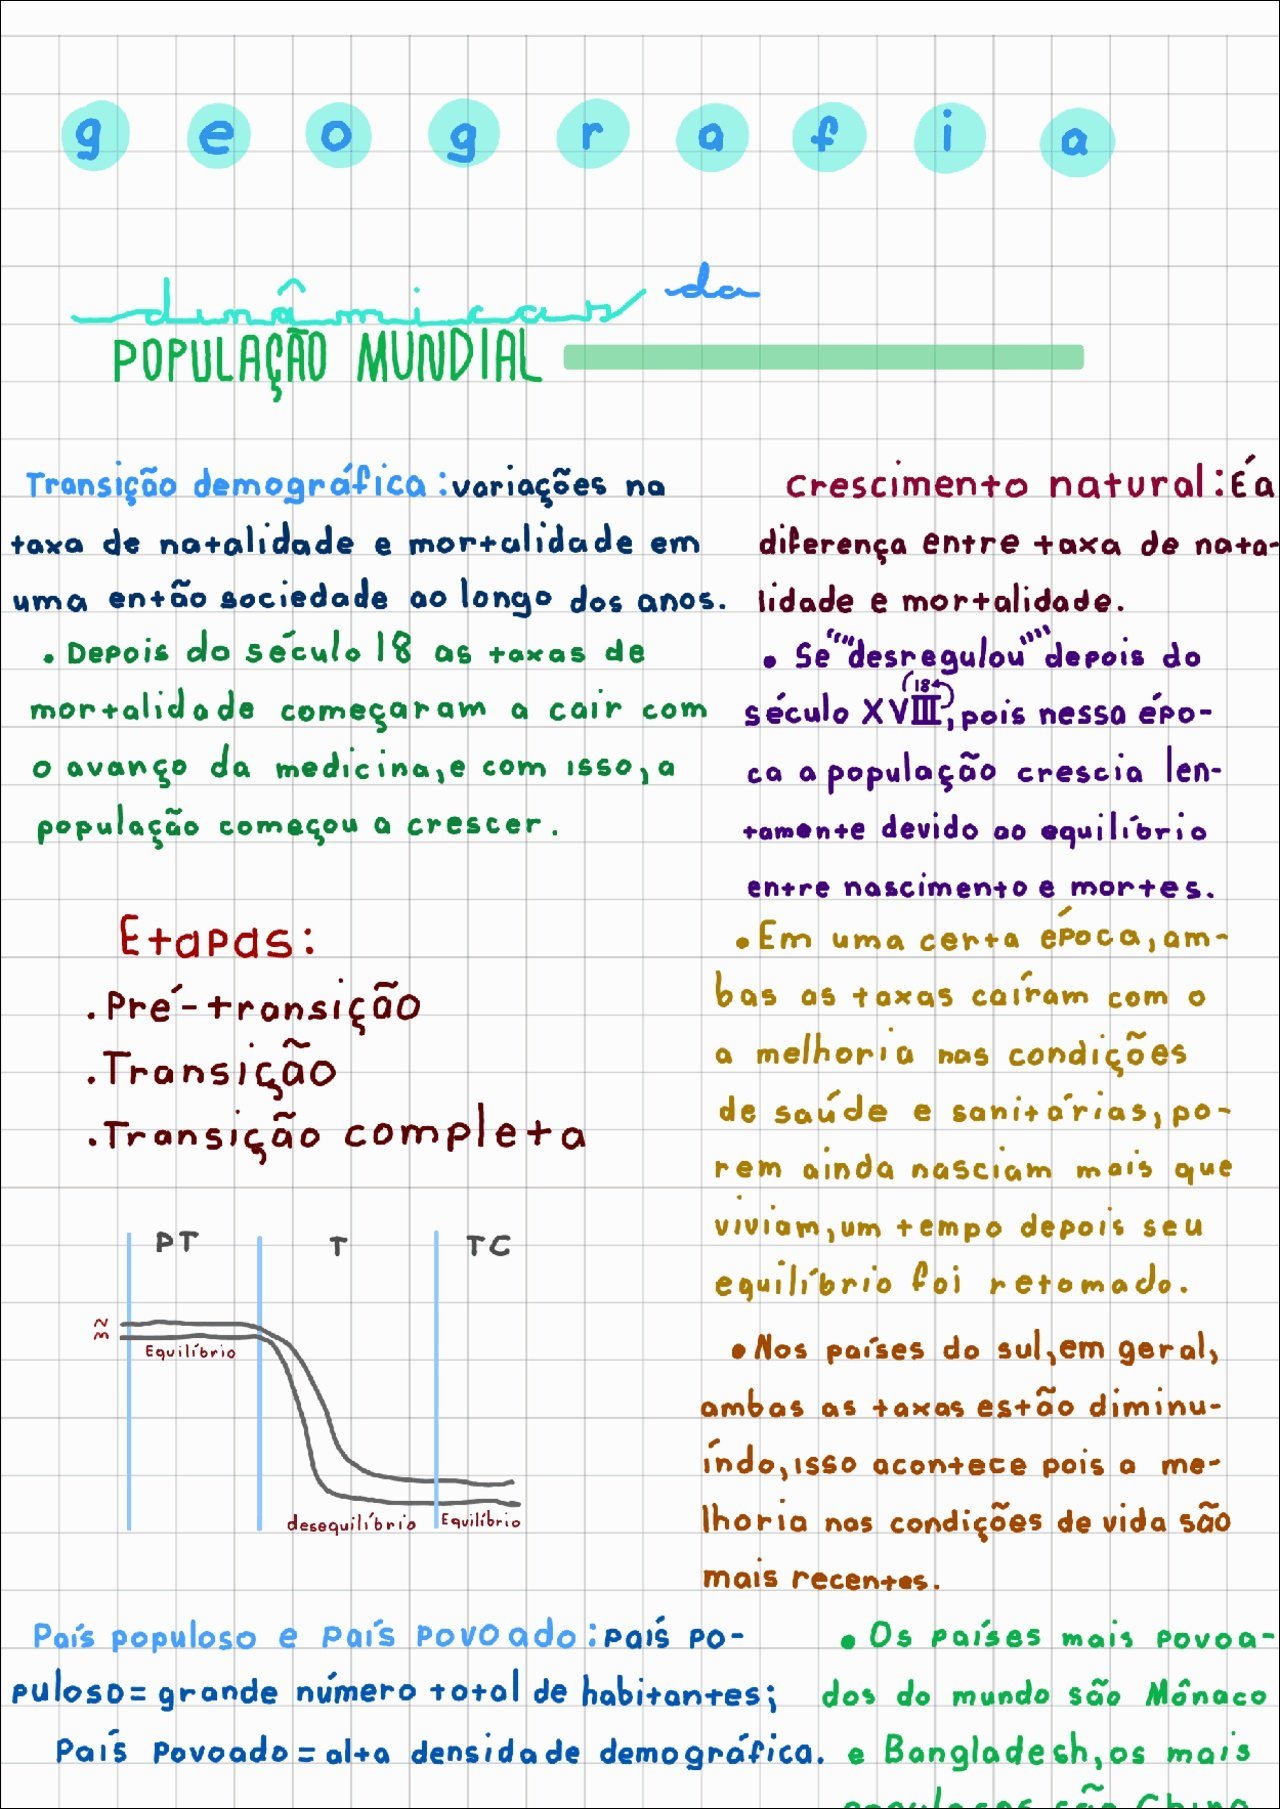 geografia
dinâmicas da
POPULAÇÃO MUNDIAL
Transição demográfica: variações na
taxa de natalidade e mortalidade em
uma então sociedade ao longo dos anos.
• Depois do século 18 as taxas de
mortalidade começaram a cair com
o avanço da medicina, e com isso, a
população começou a crescer.
Etapas:
. Pré-transição
. Transição
. Transição completa
PT T TC
N
M
Equilíbrio
desequilíbrio Equilíbrio
crescimento natural: É a
diferença entre taxa de nata-
lidade e mortalidade.
• Se "desregulou" depois do
18
século XVIII, pois nessa épo-
ca a população crescia len-
tamente devido ao equilíbrio
entre nascimento e mortes.
• Em uma certa época, am-
bas as taxas caíram com o
a melhoria nas condições
de saúde e sanitárias, po-
rem ainda nasciam mais que
viviam, um tempo depois seu
equilíbrio foi retomado.
• Nos países do sul, em geral,
ambas as taxas estão diminu-
índo, isso acontece pois a me-
lhoria nas condições de vida são
mais recentes.
País populoso e país povoado: país po-
puloso = grande número total de habitantes;
País Povoado = alta densidade demográfica.
• Os países mais povoa-
dos do mundo são Mônaco
e Bangladesh, os mais
populosos são China